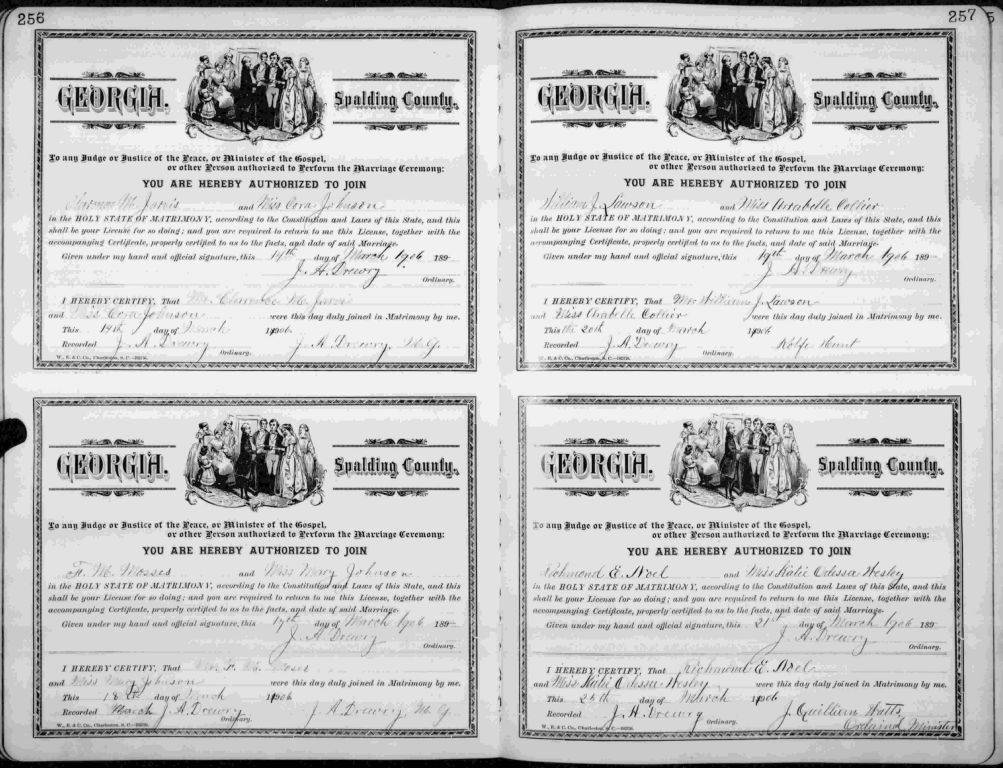 256
GEORGIA. Spalding County.
To any Judge or Justice of the Peace, or Minister of the Gospel,
or other Person authorized to Perform the Marriage Ceremony:
YOU ARE HEREBY AUTHORIZED TO JOIN
Clarence M. Jarvis and Miss Cora Johnson
in the HOLY STATE OF MATRIMONY, according to the Constitution and Laws of this State, and this
shall be your License for so doing; and you are required to return to me this License, together with the
accompanying Certificate, properly certified to as to the facts, and date of said Marriage.
Given under my hand and official signature, this 14th day of March 1906 189
J. A. Drewry
Ordinary.
I HEREBY CERTIFY, That Mr. Clarence M. Jarvis
and Miss Cora Johnson were this day duly joined in Matrimony by me.
This 14th day of March 1906
Recorded J. A. Drewry J. A. Drewry, M. G.
Ordinary.
W., E. & C. Co., Charleston, S. C.
GEORGIA. Spalding County.
To any Judge or Justice of the Peace, or Minister of the Gospel,
or other Person authorized to Perform the Marriage Ceremony:
YOU ARE HEREBY AUTHORIZED TO JOIN
F. M. Mosses and Miss Mary Johnson
in the HOLY STATE OF MATRIMONY, according to the Constitution and Laws of this State, and this
shall be your License for so doing; and you are required to return to me this License, together with the
accompanying Certificate, properly certified to as to the facts, and date of said Marriage.
Given under my hand and official signature, this 17th day of March 1906 189
J. A. Drewry
Ordinary.
I HEREBY CERTIFY, That Mr. F. M. Moses
and Miss Mary Johnson were this day duly joined in Matrimony by me.
This 18th day of March 1906
Recorded March J. A. Drewry J. A. Drewry M. G.
Ordinary.
W., E. & C. Co., Charleston, S. C.
257
GEORGIA. Spalding County.
To any Judge or Justice of the Peace, or Minister of the Gospel,
or other Person authorized to Perform the Marriage Ceremony:
YOU ARE HEREBY AUTHORIZED TO JOIN
William J. Lawson and Miss Arabelle Collier
in the HOLY STATE OF MATRIMONY, according to the Constitution and Laws of this State, and this
shall be your License for so doing; and you are required to return to me this License, together with the
accompanying Certificate, properly certified to as to the facts, and date of said Marriage.
Given under my hand and official signature, this 19th day of March 1906 189
J. A. Drewry
Ordinary.
I HEREBY CERTIFY, That Mr. William J. Lawson
and Miss Arabelle Collier were this day duly joined in Matrimony by me.
This the 20th day of March 1906
Recorded J. A. Drewry Rolfe Hunt
Ordinary.
W., E. & C. Co., Charleston, S. C.
GEORGIA. Spalding County.
To any Judge or Justice of the Peace, or Minister of the Gospel,
or other Person authorized to Perform the Marriage Ceremony:
YOU ARE HEREBY AUTHORIZED TO JOIN
Richmond E. Noel and Miss Katie Odessa Wesley
in the HOLY STATE OF MATRIMONY, according to the Constitution and Laws of this State, and this
shall be your License for so doing; and you are required to return to me this License, together with the
accompanying Certificate, properly certified to as to the facts, and date of said Marriage.
Given under my hand and official signature, this 21st day of March 1906 189
J. A. Drewry
Ordinary.
I HEREBY CERTIFY, That Richmond E. Noel
and Miss Katie Odessa Wesley were this day duly joined in Matrimony by me.
This 25th day of March 1906
Recorded J. A. Drewry J. Quillian Watts
Ordinary. Ordained Minister
W., E. & C. Co., Charleston, S. C.